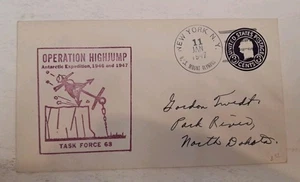 OPERATION HIGHJUMP
Antarctic Expedition, 1946 and 1947
TASK FORCE 68
NEW YORK, N.Y.
11
JAN
1947
UNITED STATES POSTAGE
CENTS
Gordon Twedt
Park River,
North Dakota.